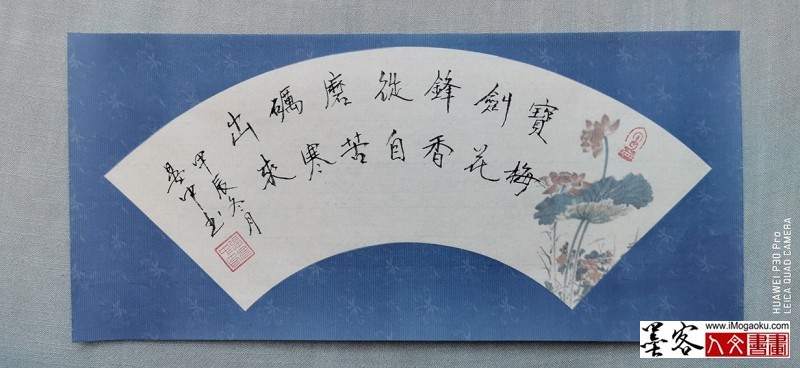 寶劍鋒從磨礪出
梅花香自苦寒來
甲辰冬月
中书
HUAWEI P30 Pro
LEICA QUAD CAMERA
www.iMogaoku.com
墨客人文書畫